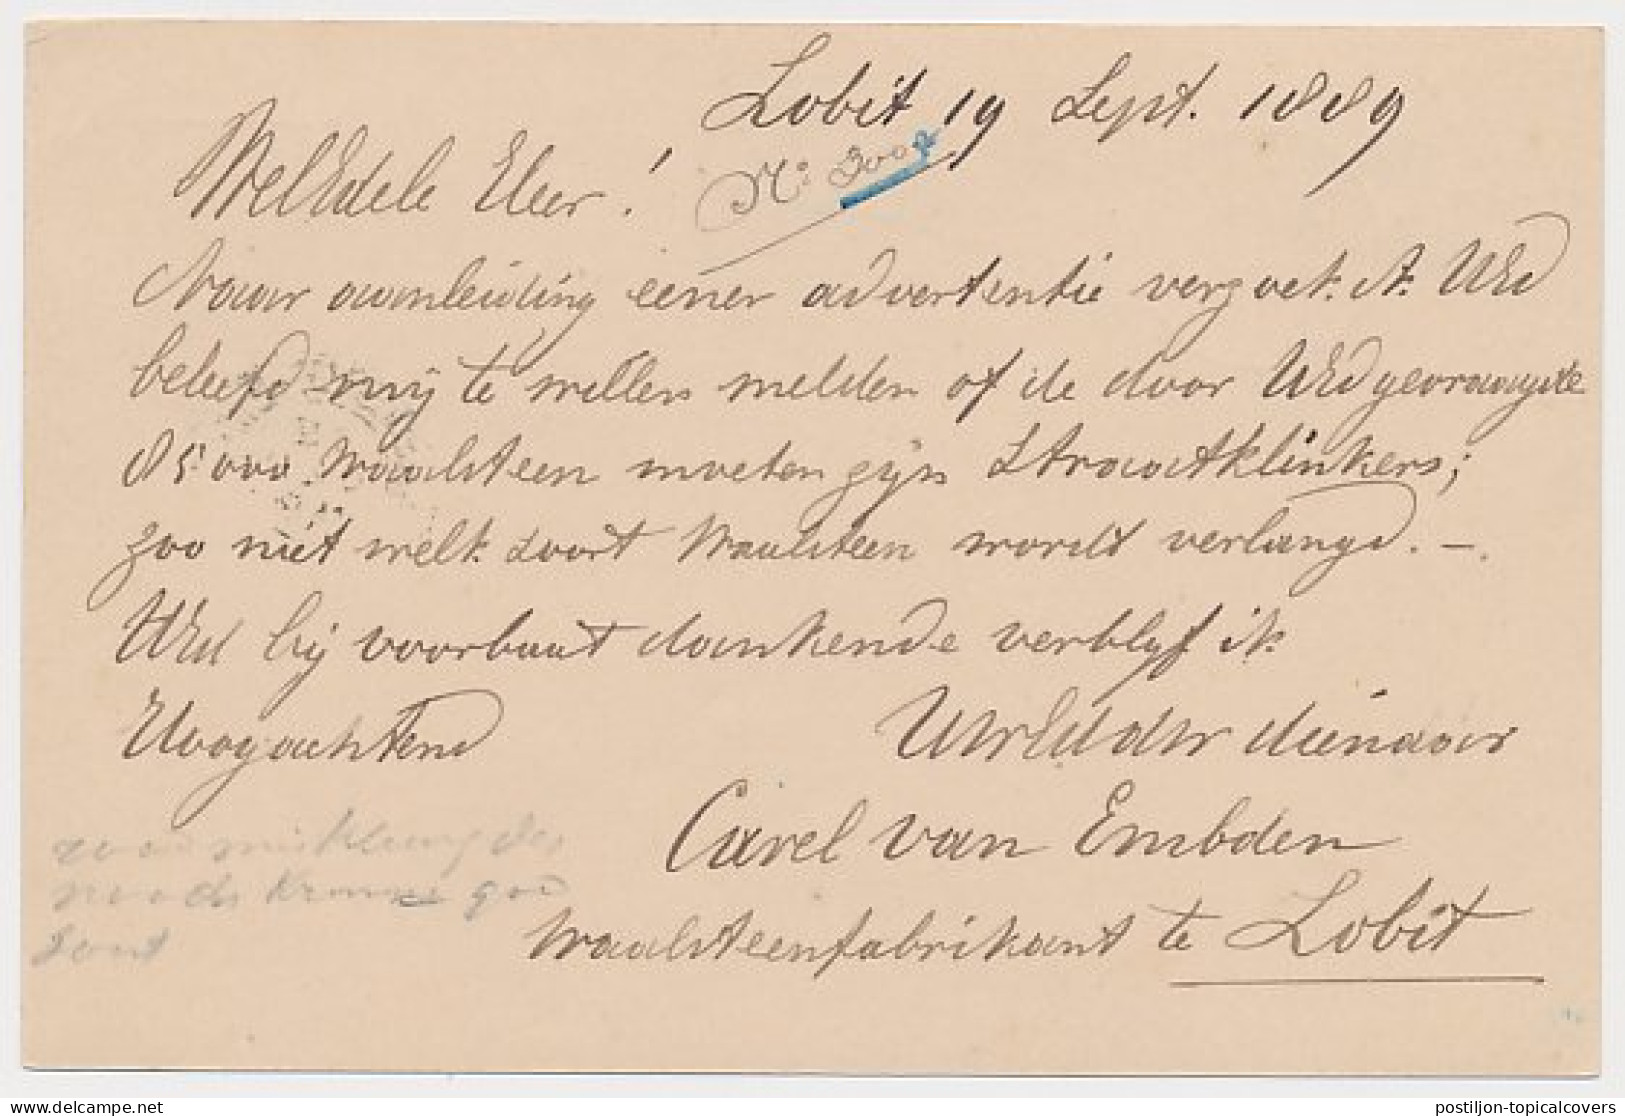 Lobit 19 Sept. 1889
WelEdele Heer!
Naar aanleiding eener advertentie verzoek ik UEd
beleefd mij te willen melden of de door UEd gevraagde
85000 Waalsteen moeten zijn Straatklinkers;
zoo niet welk soort Waalsteen wordt verlangd. –.
UEd bij voorbaat dankende verblijf ik
Hoogachtend
UwEd dw dienaar
Carel van Embden
Waalsteenfabrikant te Lobit
delcampe.net
postiljon-topicalcovers